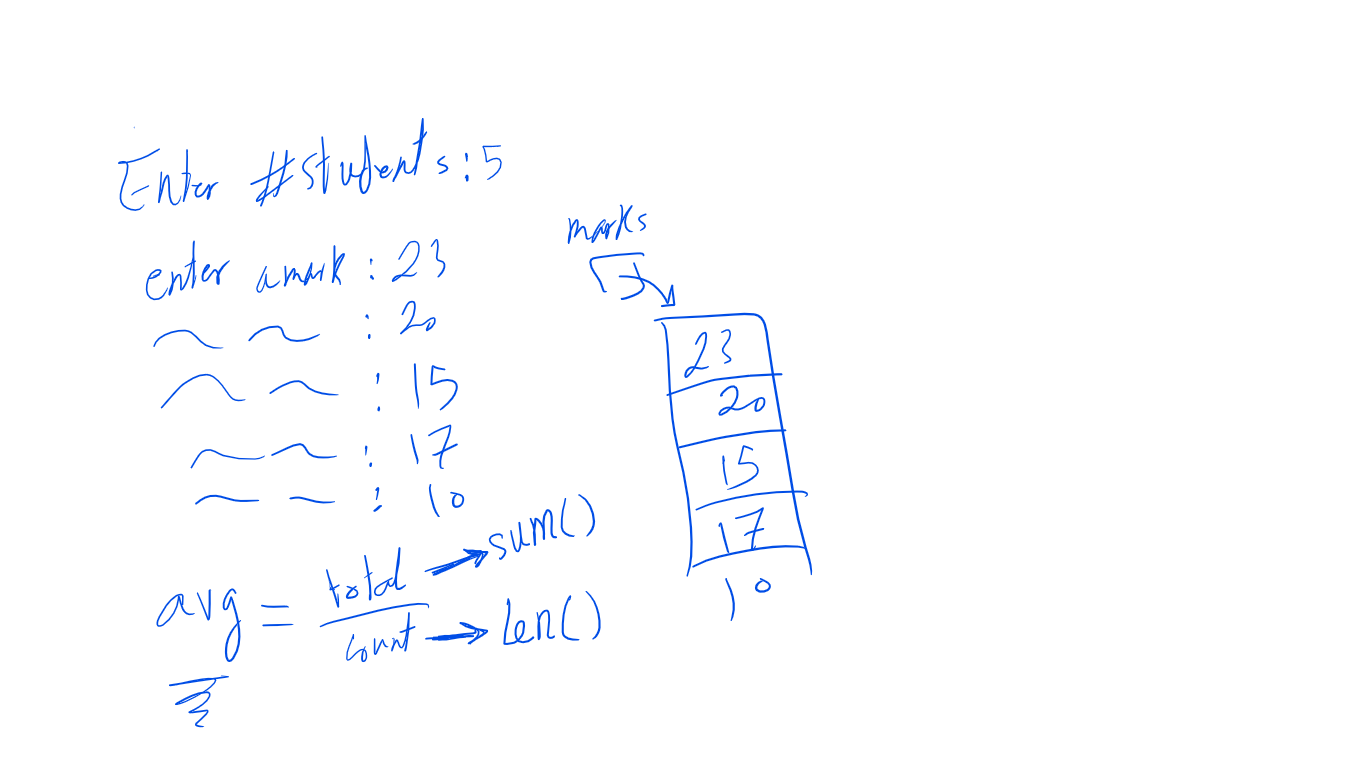 Enter #students: 5
enter a mark : 23
: 20
: 15
: 17
: 10
avg = total → sum()
count → len()
marks
23
20
15
17
10